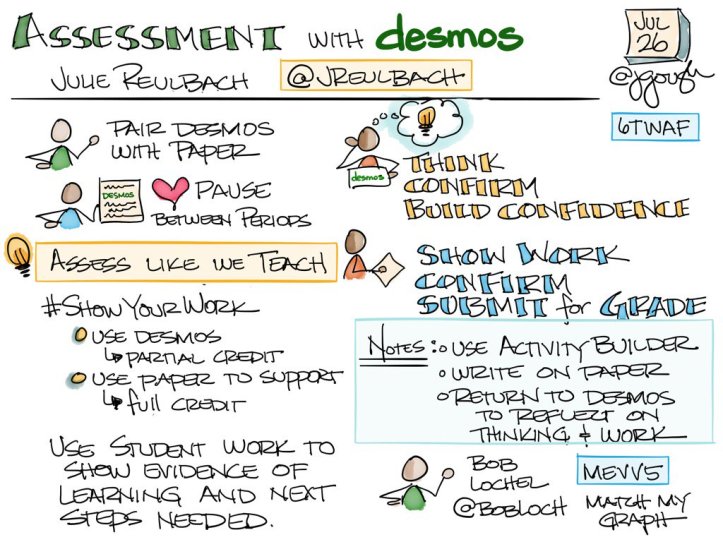 ASSESSMENT WITH desmos
JULIE REULBACH @JREULBACH
JUL
26
@jgough
6TWAF
PAIR DESMOS
WITH PAPER
DESMOS
PAUSE
BETWEEN PERIODS
desmos
THINK
CONFIRM
BUILD CONFIDENCE
ASSESS LIKE WE TEACH
SHOW WORK
CONFIRM
SUBMIT for GRADE
#SHOWYOURWORK
USE DESMOS
↳ PARTIAL CREDIT
USE PAPER TO SUPPORT
↳ full CREDIT
NOTES: USE ACTIVITY BUILDER
WRITE ON PAPER
RETURN TO DESMOS
TO REFLECT ON
THINKING & WORK
USE STUDENT WORK TO
SHOW EVIDENCE OF
LEARNING AND NEXT
STEPS NEEDED.
BOB
LOCHEL
@BOBLOCH
MEVV5
MATCH MY
GRAPH